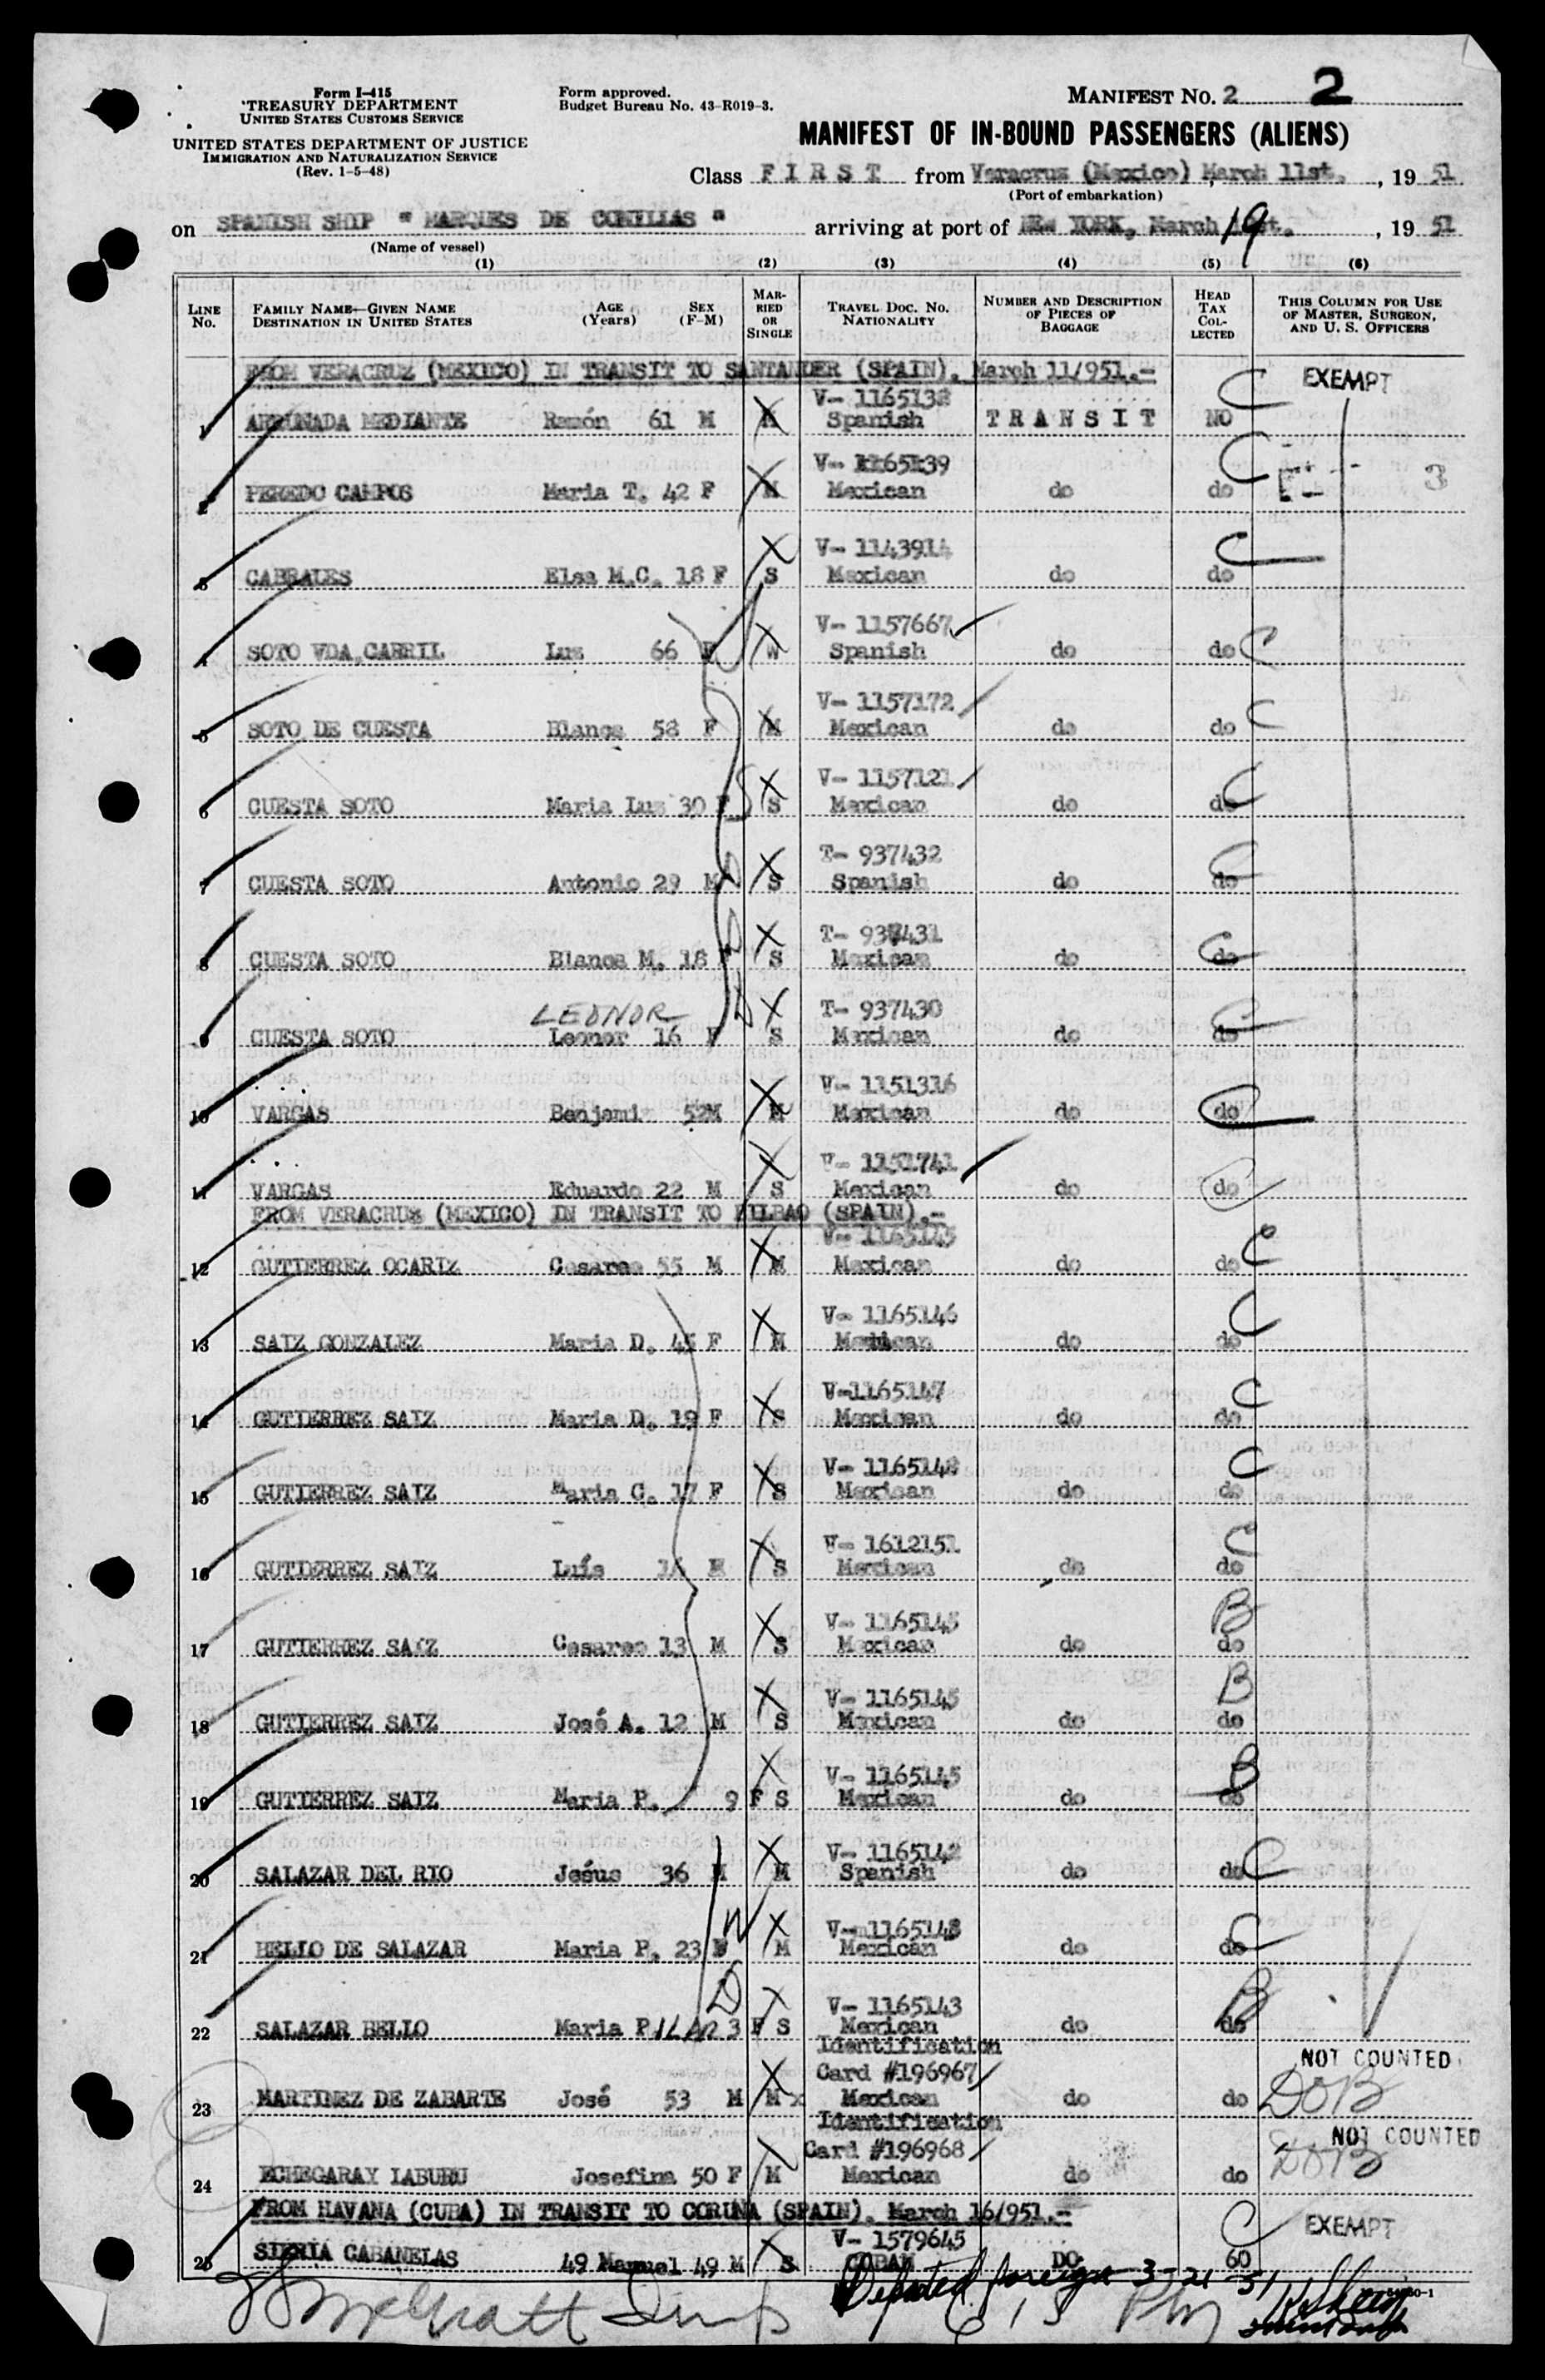 Form I-415
TREASURY DEPARTMENT
UNITED STATES CUSTOMS SERVICE
UNITED STATES DEPARTMENT OF JUSTICE
IMMIGRATION AND NATURALIZATION SERVICE
(Rev. 1-5-48)
Form approved.
Budget Bureau No. 43-R019-3.
MANIFEST NO. 2 2
MANIFEST OF IN-BOUND PASSENGERS (ALIENS)
Class FIRST from Veracruz (Mexico) March 11st., 19 51
(Port of embarkation)
on SPANISH SHIP " MARQUES DE COMILLAS " arriving at port of NEW YORK, March 19 st., 19 51
(Name of vessel)
(1) (2) (3) (4) (5) (6)
LINE NO. FAMILY NAME—GIVEN NAME DESTINATION IN UNITED STATES AGE (Years) SEX (F-M) MARRIED OR SINGLE TRAVEL DOC. NO. NATIONALITY NUMBER AND DESCRIPTION OF PIECES OF BAGGAGE HEAD TAX COLLECTED THIS COLUMN FOR USE OF MASTER, SURGEON, AND U. S. OFFICERS
FROM VERACRUZ (MEXICO) IN TRANSIT TO SANTANDER (SPAIN). March 11/951.-
V- 1165138 C EXEMPT
1 ARRUNADA MEDIANTE Ramón 61 M M Spanish TRANSIT NO
V- 1165139 C
2 PEREDO CAMPOS Maria T. 42 F M Mexican do do 3
V- 1143914 C
3 CABRALES Elsa M.C. 18 F S Mexican do do
V- 1157667
4 SOTO VDA.CABRIL Luz 66 F W Spanish do do C
V- 1157172
5 SOTO DE CUESTA Blanca 58 F M Mexican do do C
V- 1157121
6 CUESTA SOTO Maria Luz 30 F S Mexican do do C
T- 937432
7 CUESTA SOTO Antonio 29 M S Spanish do do C
T- 937431
8 CUESTA SOTO Blanca M. 18 F S Mexican do do C
LEONOR T- 937430
9 CUESTA SOTO Leonor 16 F S Mexican do do C
V- 1151316
10 VARGAS Benjami 52M M Mexican do do C
V- 1151741
11 VARGAS Eduardo 22 M S Mexican do do
FROM VERACRUZ (MEXICO) IN TRANSIT TO BILBAO (SPAIN).-
V- 1165145
12 GUTIERREZ OCARIZ Cesareo 55 M M Mexican do do C
V- 1165146
13 SAIZ GONZALEZ Maria D. 45 F M Mexican do do C
V-1165147
14 GUTIERREZ SAIZ Maria D. 19 F S Mexican do do C
V- 1165148
15 GUTIERREZ SAIZ Maria C. 17 F S Mexican do do C
V- 1612151
16 GUTIERREZ SAIZ Luís M S Mexican do do C
V- 1165145
17 GUTIERREZ SAIZ Cesareo 13 M S Mexican do do B
V- 1165145
18 GUTIERREZ SAIZ José A. 12 M S Mexican do do B
V- 1165145
19 GUTIERREZ SAIZ Maria P. 9 F S Mexican do do B
V- 1165142
20 SALAZAR DEL RIO Jesús 36 M M Spanish do do C
V- 1165143
21 BELLO DE SALAZAR Maria P. 23 F W M Mexican do do C
V- 1165143
22 SALAZAR BELLO Maria P. 3 F D S Mexican do do B
Identification
Card #196967 NOT COUNTED
23 MARTINEZ DE ZABARTE José 53 M M Mexican do do DOB
Identification
Card #196968 NOT COUNTED
24 ECHEGARAY LABURU Josefina 50 F M Mexican do do DOB
FROM HAVANA (CUBA) IN TRANSIT TO CORUNA (SPAIN). March 16/951.-
V- 1579645 C EXEMPT
25 SIERIA CABANELAS 49 Manuel 49 M S CUBAN DO
Departed foreign 3-21-51